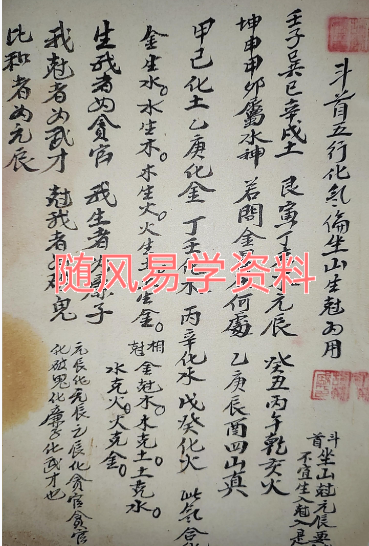 斗首五行化氣倫坐山生尅為用
斗首坐山尅元辰
不宜生入尅入是
壬子巽巳辛戌土 艮寅丁 元辰 癸丑丙午乾亥火
坤申甲卯屬水神 若問金 何處 乙庚辰酉四山真
甲己化土 乙庚化金 丁壬化木 丙辛化水 戊癸化火 此氣合
金生水。水生木。木生火。火生 生金。 相尅 金尅木。木克土。土克水
水克火。火克金。
生我者為貪官 我生者 子
我尅者為武才 尅我者 鬼
比和者為元辰
元辰化元辰元辰化貪官貪官
化破鬼化廉子化武才也
随风易学资料